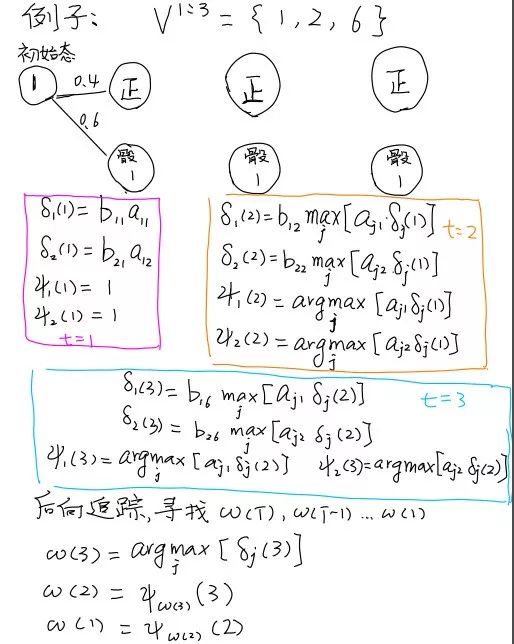 例子： V^{1:3} = { 1, 2, 6 }
初始态
1 0.4 正 正 正
0.6
骰1 骰1 骰1
δ₁(1) = b₁₁ a₁₁
δ₂(1) = b₂₁ a₁₂
ψ₁(1) = 1
ψ₂(1) = 1
t=1
δ₁(2) = b₁₂ max_j [a_{j1}·δ_j(1)] t=2
δ₂(2) = b₂₂ max_j [a_{j2} δ_j(1)]
ψ₁(2) = argmax_j [a_{j1} δ_j(1)]
ψ₂(2) = argmax_j [a_{j2} δ_j(1)]
δ₁(3) = b₁₆ max_j [a_{j1} δ_j(2)] t=3
δ₂(3) = b₂₆ max_j [a_{j2} δ_j(2)]
ψ₁(3) = argmax_j [a_{j1} δ_j(2)] ψ₂(3) = argmax_j [a_{j2} δ_j(2)]
后向追踪, 寻找 ω(T), ω(T-1) ... ω(1)
ω(3) = argmax_j [δ_j(3)]
ω(2) = ψ_{ω(3)}(3)
ω(1) = ψ_{ω(2)}(2)